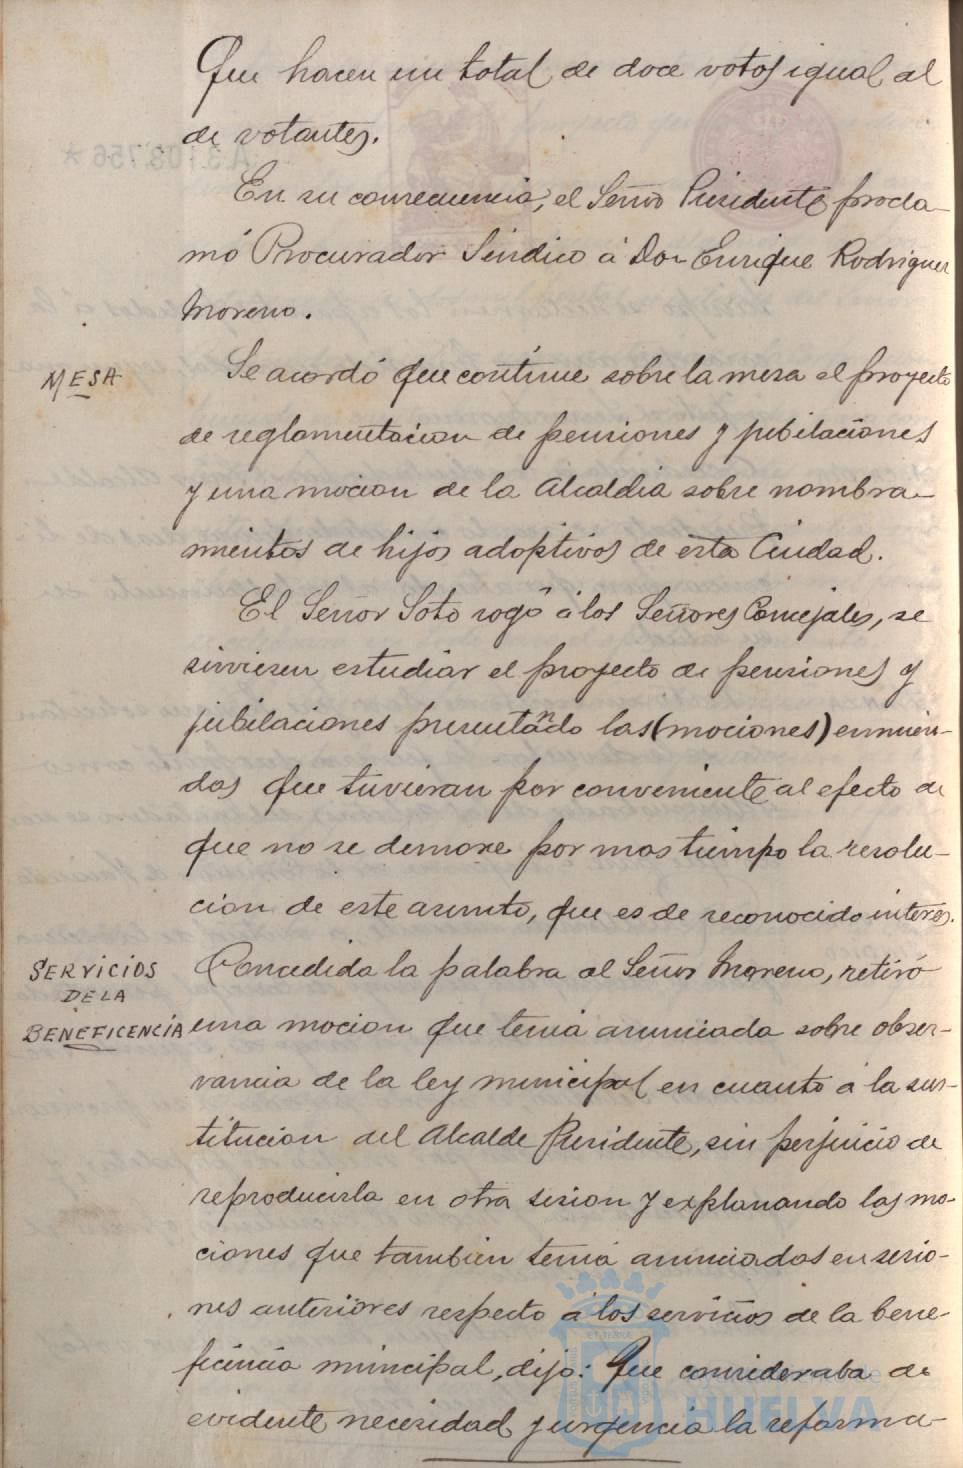 Que hacen un total de doce votos igual al
de votantes.
En su consecuencia, el Señor Presidente procla-
mó Procurador Síndico á Don Enrique Rodriguez
Moreno.
MESA
Se acordó que continue sobre la mesa el proyecto
de reglamentacion de pensiones y jubilaciones
y una mocion de la Alcaldia sobre nombra-
mientos de hijos adoptivos de esta Ciudad.
El Señor Soto rogó á los Señores Concejales, se
sirviesen estudiar el proyecto de pensiones y
jubilaciones presentando las (mociones) enmien-
das que tuvieran por conveniente al efecto de
que no se demore por mas tiempo la resolu-
cion de este asunto, que es de reconocido interes.
SERVICIOS
DE LA
BENEFICENCIA
Concedida la palabra al Señor Moreno, retiró
una mocion que tenia anunciada sobre obser-
vancia de la ley municipal en cuanto á la sus-
titucion del Alcalde Presidente, sin perjuicio de
reproducirla en otra sesion y explanando las mo-
ciones que tambien tenia anunciadas en sesio-
nes anteriores respecto á los servicios de la bene-
ficencia municipal, dijo: Que consideraba de
evidente necesidad y urgencia la reforma-
HUELVA